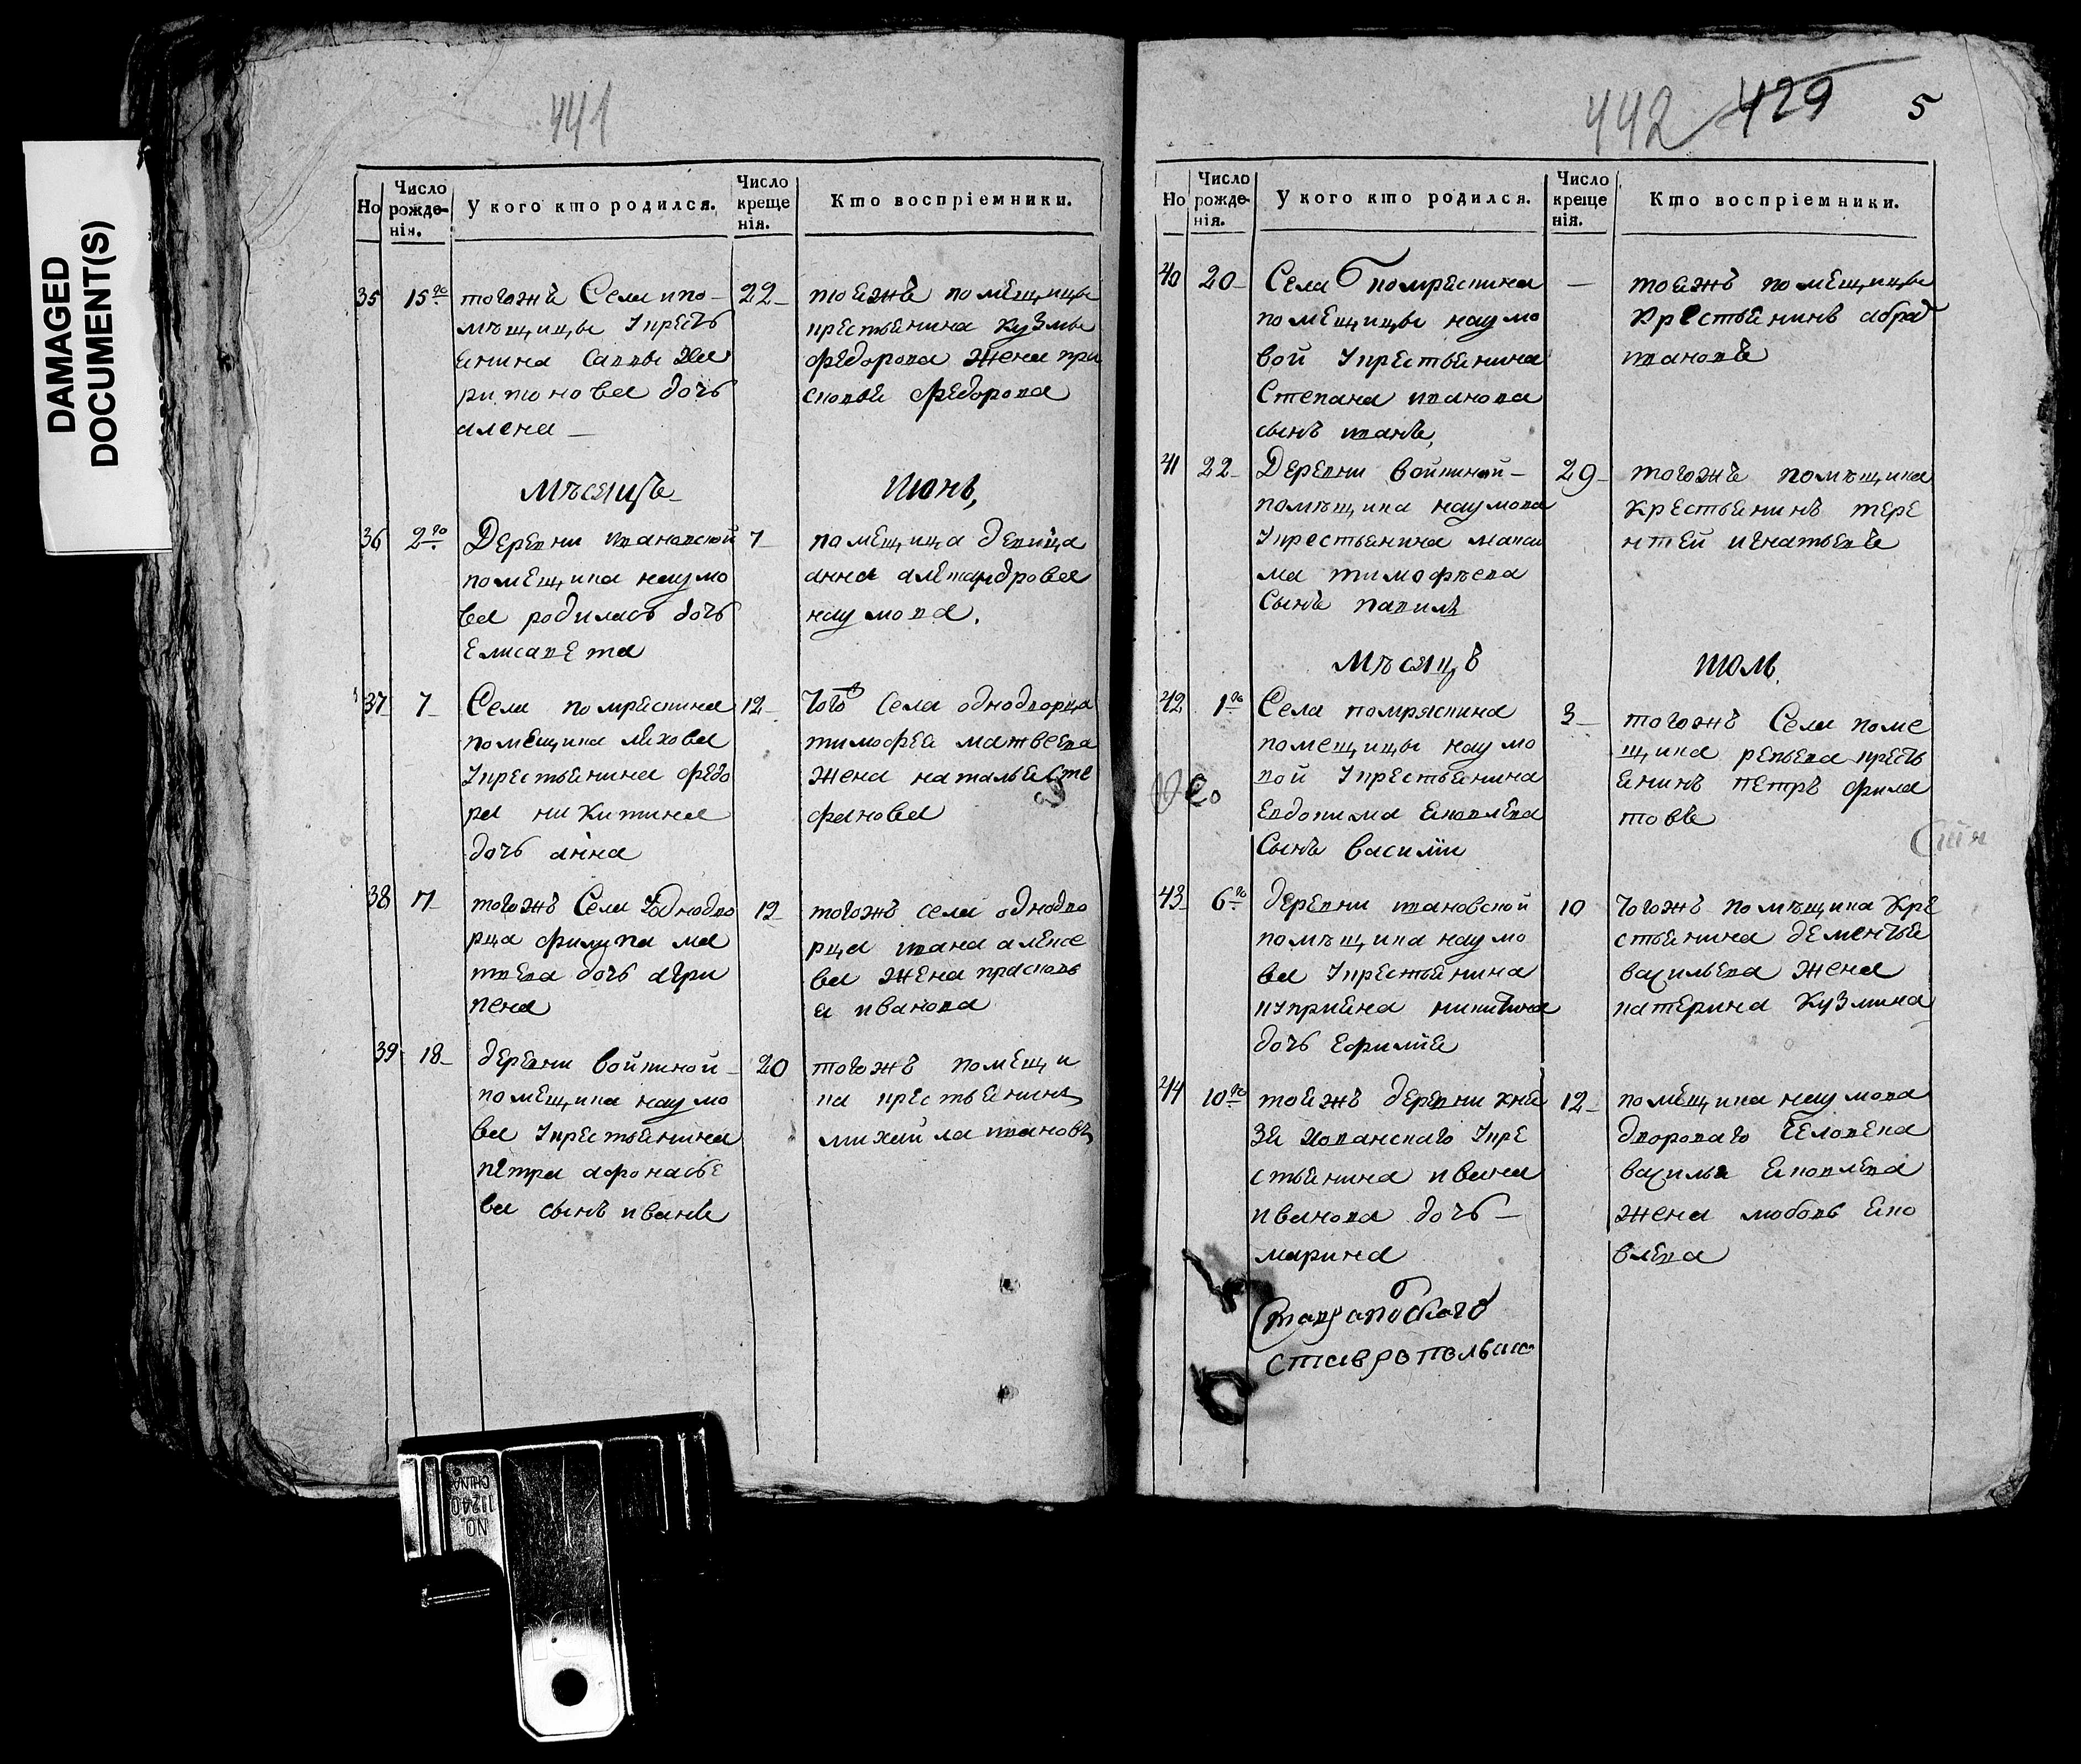 DAMAGED
DOCUMENT(S)
441
Но
Число рожденія.
У кого кто родился.
Число крещенія.
Кто воспріемники.
35 15го
тогожъ Села ипо-
мѣщицы 1 крестъ
янина Саввы Ха
ритонова дочь
алена
22
тояжъ помещицы
крестьянина кузмы
федорова жена пра
сковья федорова
Мѣсяцъ
Июнь,
36 2го
Деревни ивановской
помещика наумо
ва родилась дочь
Елисавета
7
помещица девица
анна александрова
наумова.
37 7
Села помряскина
помещика
1 крестьянина федо
ра никитина
дочь анна
12
тогожъ села однодворца
тимофея матвеева
жена наталья сте
фанова
38
тогожъ Села однодво
рца филипа ма
твева дочь агри
пена
12
тогожъ села однодво
рца ивана алексе
ва жена прасковь
я иванова
39 18
деревни войкиной
помещика наумо
ва 1 крестьянина
петра афонасье
ва сынъ иванъ
20
тогожъ помещи
ка крестьянинъ
михаила ивановъ
442 429 5
Но
Число рожденія.
У кого кто родился.
Число крещенія.
Кто воспріемники.
40 20
Села помряскина
помещицы наумо
вой 1 крестьянина
Степана иванова
сынъ иванъ,
тояжъ помещицы
крестьянинъ
ивановъ
41 22
Деревни войкиной
помѣщика наумова
1 крестьянина макси
ма тимофѣева
Сынъ павилъ
29
тогожъ помѣщика
крестьянинъ тере
нтей игнатьевъ
Мѣсяцъ
июль
42 1го
Села помряскина
помещицы наумо
вой 1 крестьянина
Евдокима яковлева
Сынъ василии
3
тогожъ Села поме
щика репьева кресть
янинъ петръ фила
товъ
43 6го
деревни ивановской
помѣщика наумо
ва 1 крестьянина
киприяна никитина
дочь ефимия
10
тогожъ помѣщика кре
стьянина дементья
васильева жена
катерина кузмина
44 10го
тояжъ деревни кня
зя хованскаго 1 кре
стьянина ивана
иванова дочь
марина
12
помещика наумова
двороваго человека
василья яковлева
жена любовь яко
влева
ставропольск
NO.
11240
CHINA